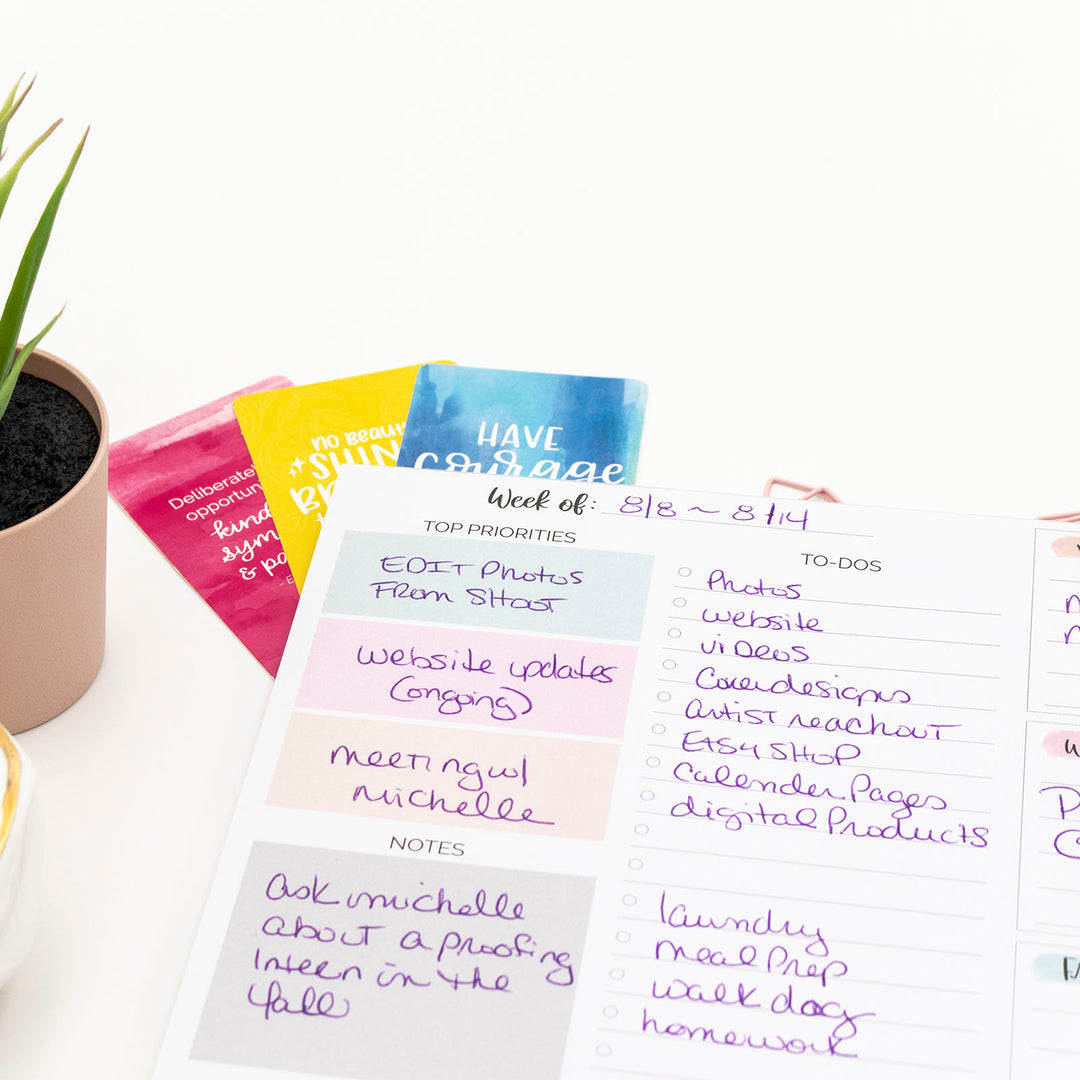 Deliberate
opportun
kind
sym
& pa
NO BEAUT
SHIN
BR
HAVE
courage
Week of: 8/8 ~ 8/14
TOP PRIORITIES
EDIT Photos
From SHOOT
website updates
(ongoing)
meeting w/
michelle
NOTES
ask michelle
about a proofing
Intern in the
fall
TO-DOS
Photos
website
videos
Cover designs
artist reachout
Etsy SHOP
Calender Pages
digital Products
laundry
meal Prep
walk dog
homework